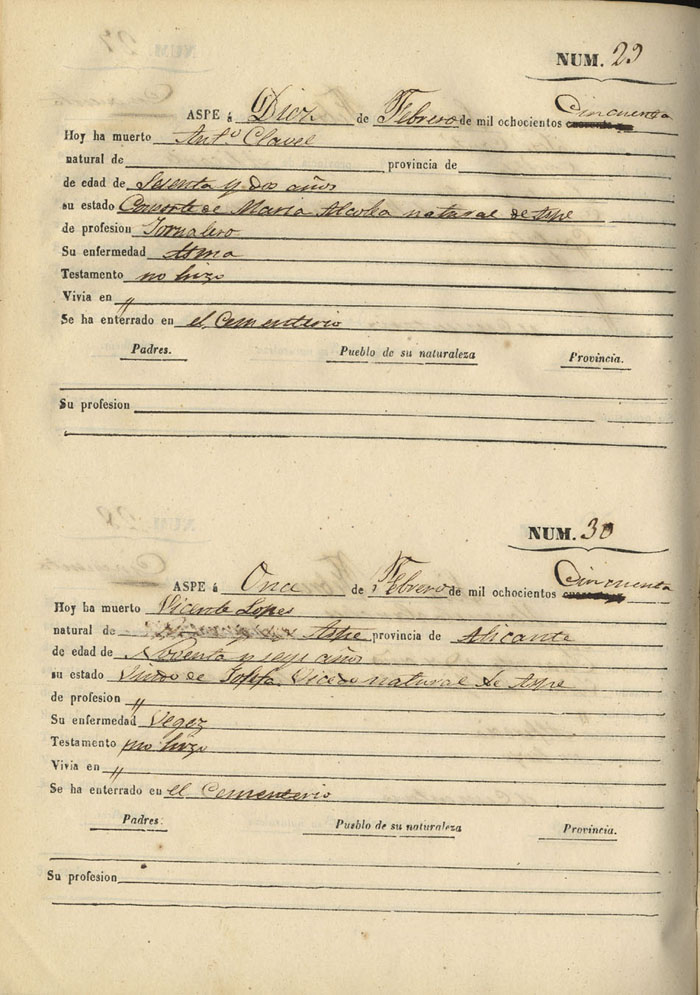 NUM. 29
Cincuenta
ASPE á Diez de Febrero de mil ochocientos
Hoy ha muerto Ant.º Clavel
natural de provincia de
de edad de Sesenta y dos años
su estado Consorte de Maria Alcolea natural de Aspe
de profesion Jornalero
Su enfermedad Asma
Testamento no hizo
Vivia en "
Se ha enterrado en el Cementerio
Padres. Pueblo de su naturaleza Provincia.
Su profesion
NUM. 30
Cincuenta
ASPE á Once de Febrero de mil ochocientos
Hoy ha muerto Vicente Lopes
natural de Aspe provincia de Alicante
de edad de Noventa y seys años
su estado Viudo de Vicedo natural de Aspe
de profesion "
Su enfermedad Vegez
Testamento no hizo
Vivia en "
Se ha enterrado en el Cementerio
Padres. Pueblo de su naturaleza Provincia.
Su profesion